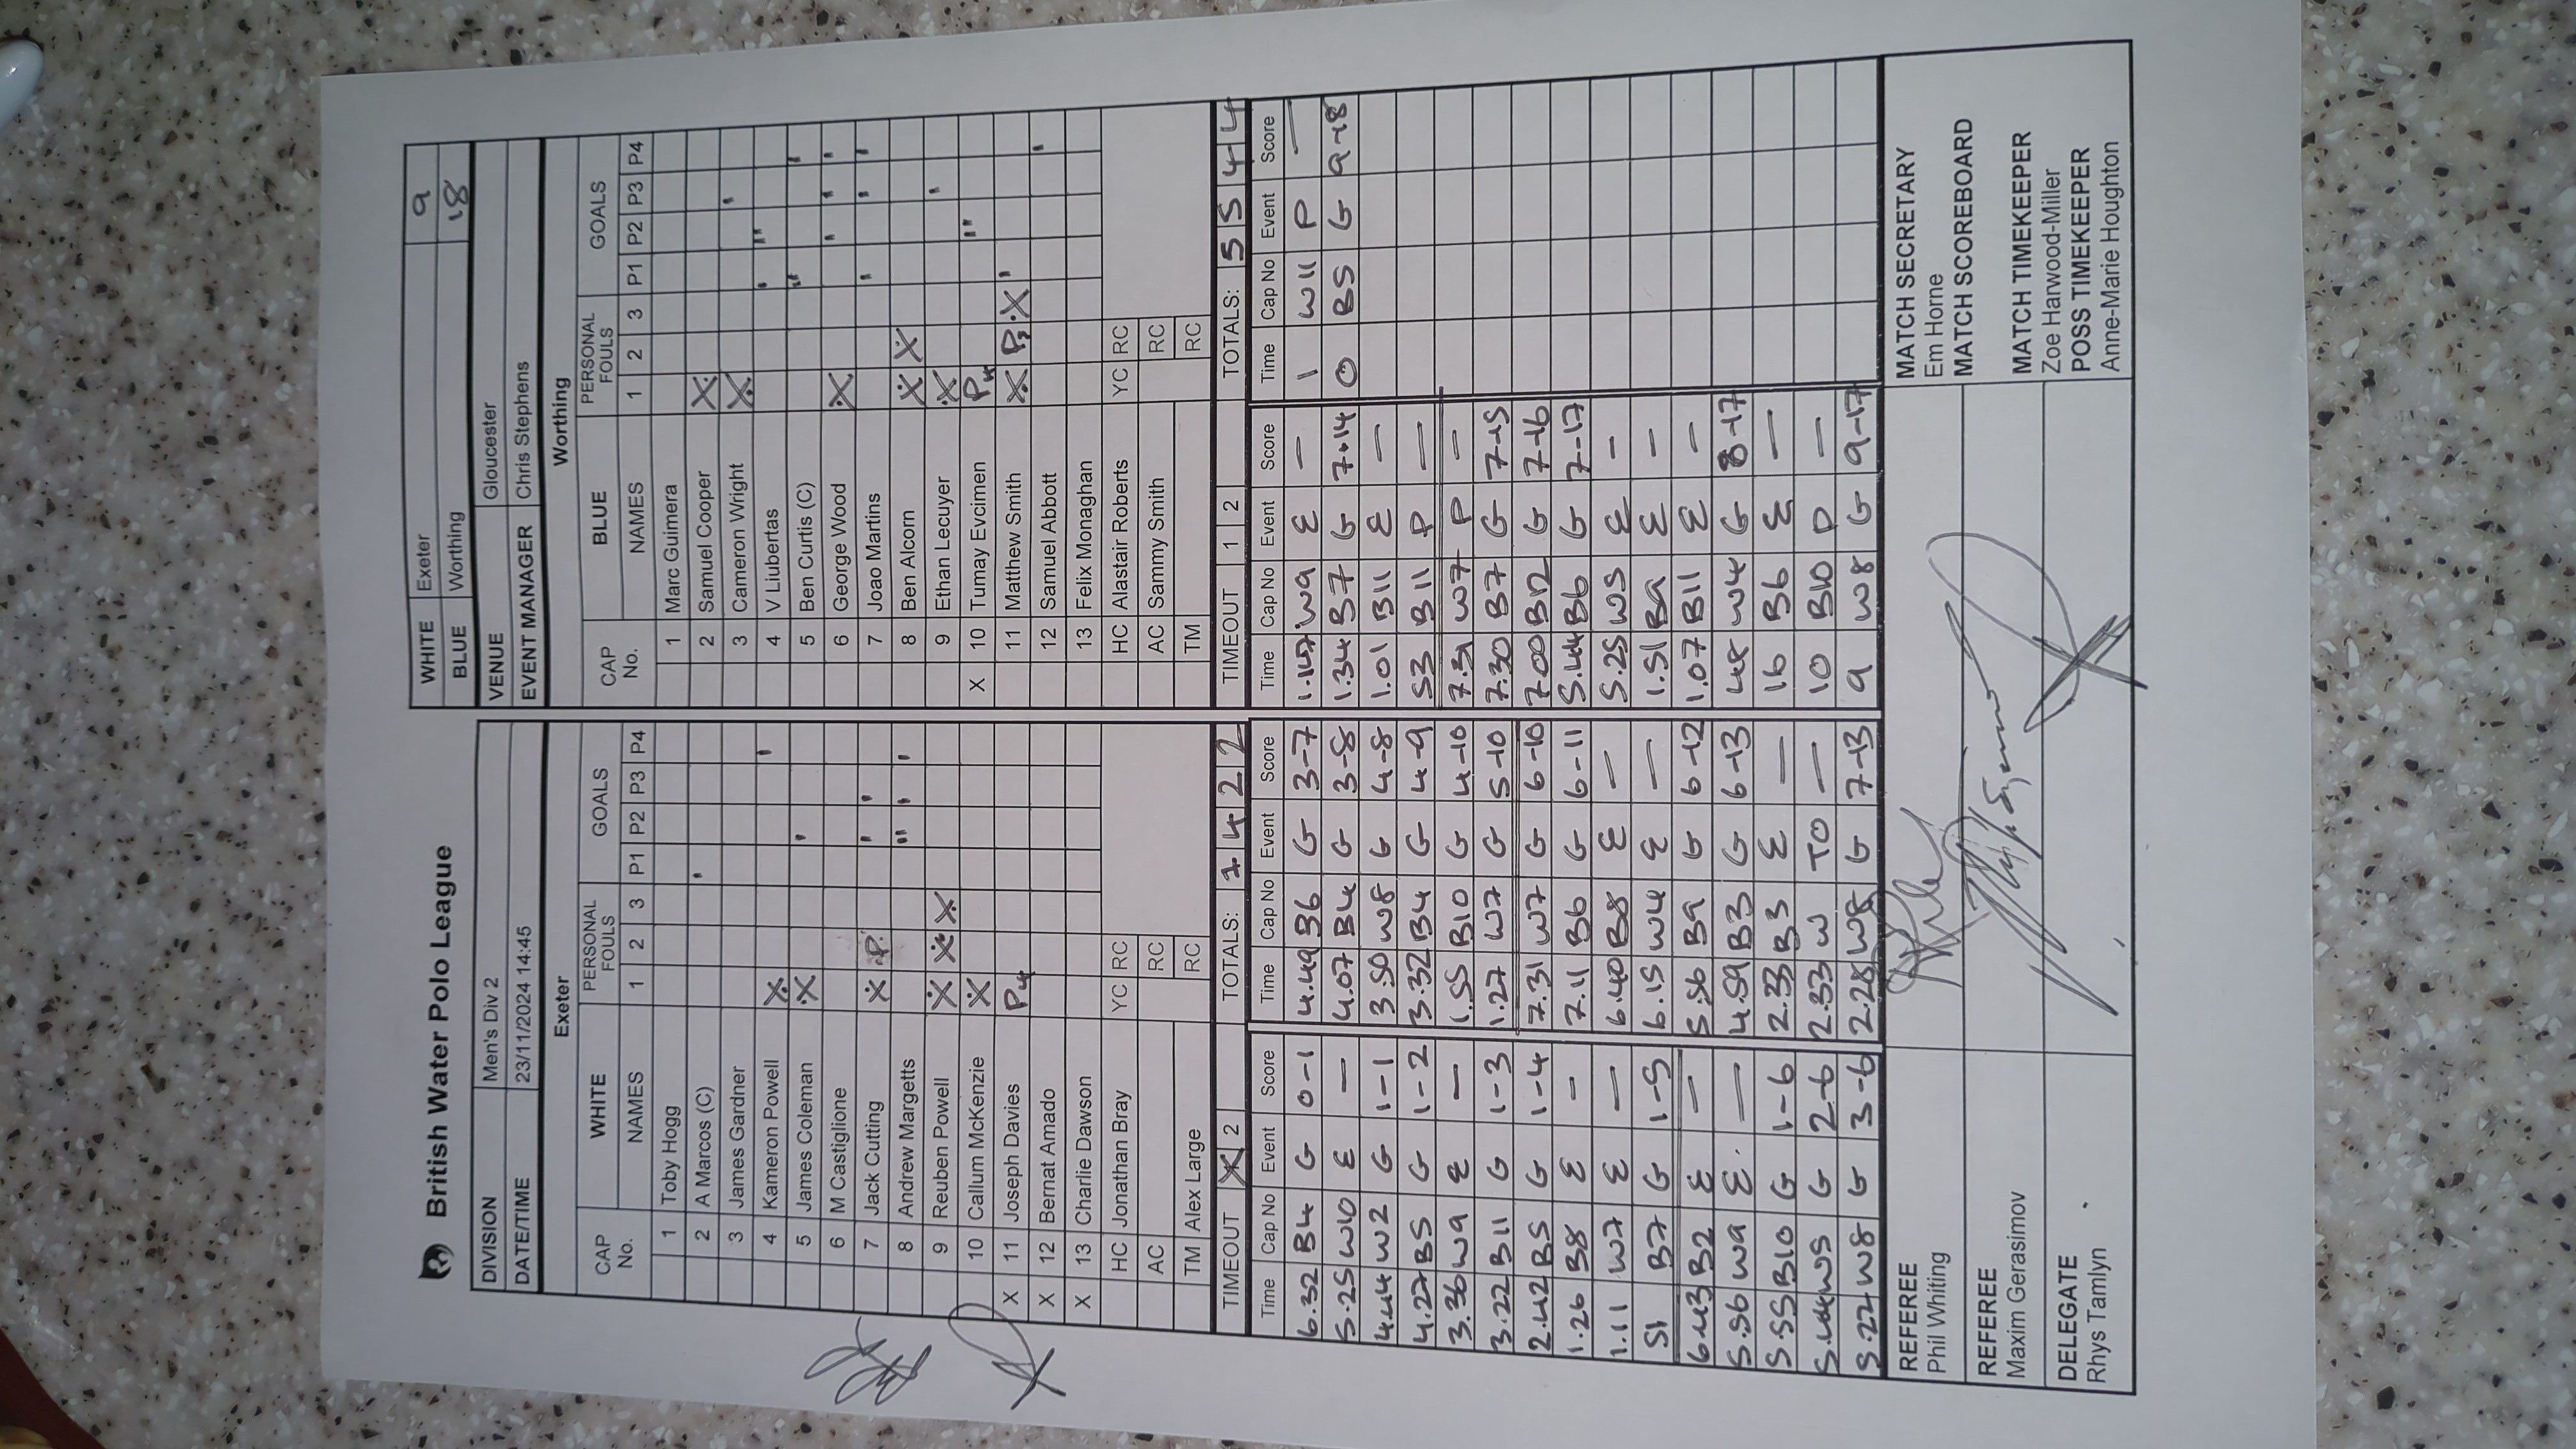 British Water Polo League
WHITE Exeter 9
BLUE Worthing 18
DIVISION Men's Div 2
DATE/TIME 23/11/2024 14:45
VENUE Gloucester
EVENT MANAGER Chris Stephens
Exeter
CAP No. WHITE NAMES PERSONAL FOULS 1 2 3 GOALS P1 P2 P3 P4
1 Toby Hogg
2 A Marcos (C)
3 James Gardner
4 Kameron Powell X
5 James Coleman X
6 M Castiglione
7 Jack Cutting X P
8 Andrew Margetts
9 Reuben Powell X X X
10 Callum McKenzie X
X 11 Joseph Davies P4
X 12 Bernat Amado
X 13 Charlie Dawson
HC Jonathan Bray YC RC
AC RC
TM Alex Large RC
TIMEOUT 1 2 TOTALS: 1 4 2 2
Worthing
CAP No. BLUE NAMES PERSONAL FOULS 1 2 3 GOALS P1 P2 P3 P4
1 Marc Guimera
2 Samuel Cooper X
3 Cameron Wright X
4 V Liubertas
5 Ben Curtis (C)
6 George Wood X
7 Joao Martins
8 Ben Alcorn X X
9 Ethan Lecuyer X
X 10 Tumay Evcimen P4
11 Matthew Smith X P3 X
12 Samuel Abbott
13 Felix Monaghan
HC Alastair Roberts YC RC
AC Sammy Smith RC
TM RC
TIMEOUT 1 2 TOTALS: 5 5 4 4
Time Cap No Event Score
6.32 B4 G 0-1
5.25 W10 E —
4.44 W2 G 1-1
4.27 B5 G 1-2
3.36 W9 E —
3.22 B11 G 1-3
2.42 B5 G 1-4
1.26 B8 E —
1.11 W7 E —
51 B7 G 1-5
6.43 B2 E —
5.56 W9 E —
5.55 B10 G 1-6
5.44 W5 G 2-6
5.22 W8 G 3-6
Time Cap No Event Score
4.49 B6 G 3-7
4.07 B4 G 3-8
3.50 W8 G 4-8
3.32 B4 G 4-9
1.55 B10 G 4-10
1.27 W7 G 5-10
7.31 W7 G 6-10
7.11 B6 G 6-11
6.40 B8 E —
6.15 W4 E —
5.56 B9 G 6-12
4.59 B3 G 6-13
2.33 B3 E —
2.33 W TO —
2.28 W8 G 7-13
Time Cap No Event Score
W9 E —
1.34 B7 G 7-14
1.01 B11 E —
53 B11 P —
7.31 W7 P —
7.30 B7 G 7-15
7.00 B12 G 7-16
5.44 B6 G 7-17
5.25 W5 E —
1.51 B9 E —
1.07 B11 E —
48 W4 G 8-17
16 B6 E —
10 B10 P —
9 W8 G 9-17
Time Cap No Event Score
1 W11 P —
0 B5 G 9-18
REFEREE
Phil Whiting
REFEREE
Maxim Gerasimov
DELEGATE
Rhys Tamlyn
MATCH SECRETARY
Em Horne
MATCH SCOREBOARD
MATCH TIMEKEEPER
Zoe Harwood-Miller
POSS TIMEKEEPER
Anne-Marie Houghton